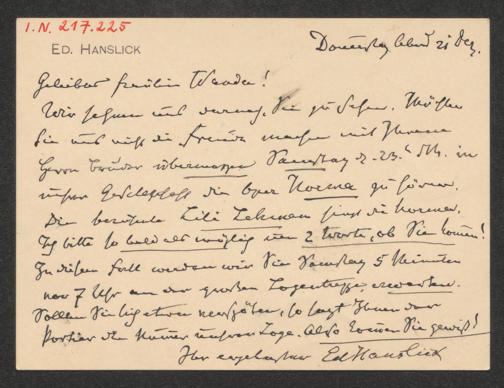 I.N. 217.225
ED. HANSLICK
Donnerstag Abend 21 Dez.
Geliebtes Fräulein Wanda!
Wir sehnen uns darnach, Sie zu sehen. Möchten
Sie uns nicht die Freude machen mit Ihrem
Herrn Bruder übermorgen Samstag d. 23. dM. in
unsrer Gesellschaft die Oper Norma zu hören.
Die berühmte Lili Lehman singt die Norma.
Ich bitte so bald als möglich um 2 Worte, ob Sie kommen!
In diesem Fall werden wir Sie Samstag 5 Minuten
vor 7 Uhr an der großen Logentreppe erwarten.
Sollten Sie sich etwas verspäten, so sagt Ihnen der
Portier die Numer unsrer Loge. Also kommen Sie gewiß!
Ihr ergebenster Ed Hanslick